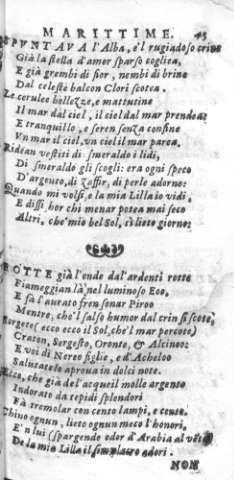 MARITTIME. 45
SPVNTAVA l'Alba, e'l rugiadoso crine
Già la stella d'amor sparso coglica,
E già grembi di fior, nembi di brine
Dal celeste balcon Clori scotea.
Le cerulee bellezze, e mattutine
Il mar dal ciel, il ciel dal mar prendea:
E tranquillo, e seren senza confine
Vn mar il ciel, vn ciel il mar parea.
Ridean vestiti di smeraldo i lidi,
Di smeraldo gli scogli: era ogni speco
D'argento, di Zaffir, di perle adorno:
Quando mi volsi, e la mia Lilla io vidi,
E dissi hor chi menar potea mai seco
Altri, che'l mio bel Sol, sì lieto giorno?
ROTTE già l'onde dal'ardenti rote
Fiameggian là nel luminoso Eoo,
E fà l'aurato fren sonar Piroo
Mentre, che'l salso humor dal crin si scote,
Sorgete (ecco ecco il Sol, che'l mar percote)
Craton, Sergesto, Oronte, & Alcinoo:
E voi di Nereo figlie, e d'Acheloo
Salutatelo a proua in dolci note.
Ecco, che già del'acque il molle argento
Indorato da tepidi splendori
Fà tremolar con cento lampi, e cento.
Chino ognun, lieto ognun meco l'honori,
E'n lui (spargendo odor d'Arabia al vento)
De la mia Lilla il simolacro adori.
NON